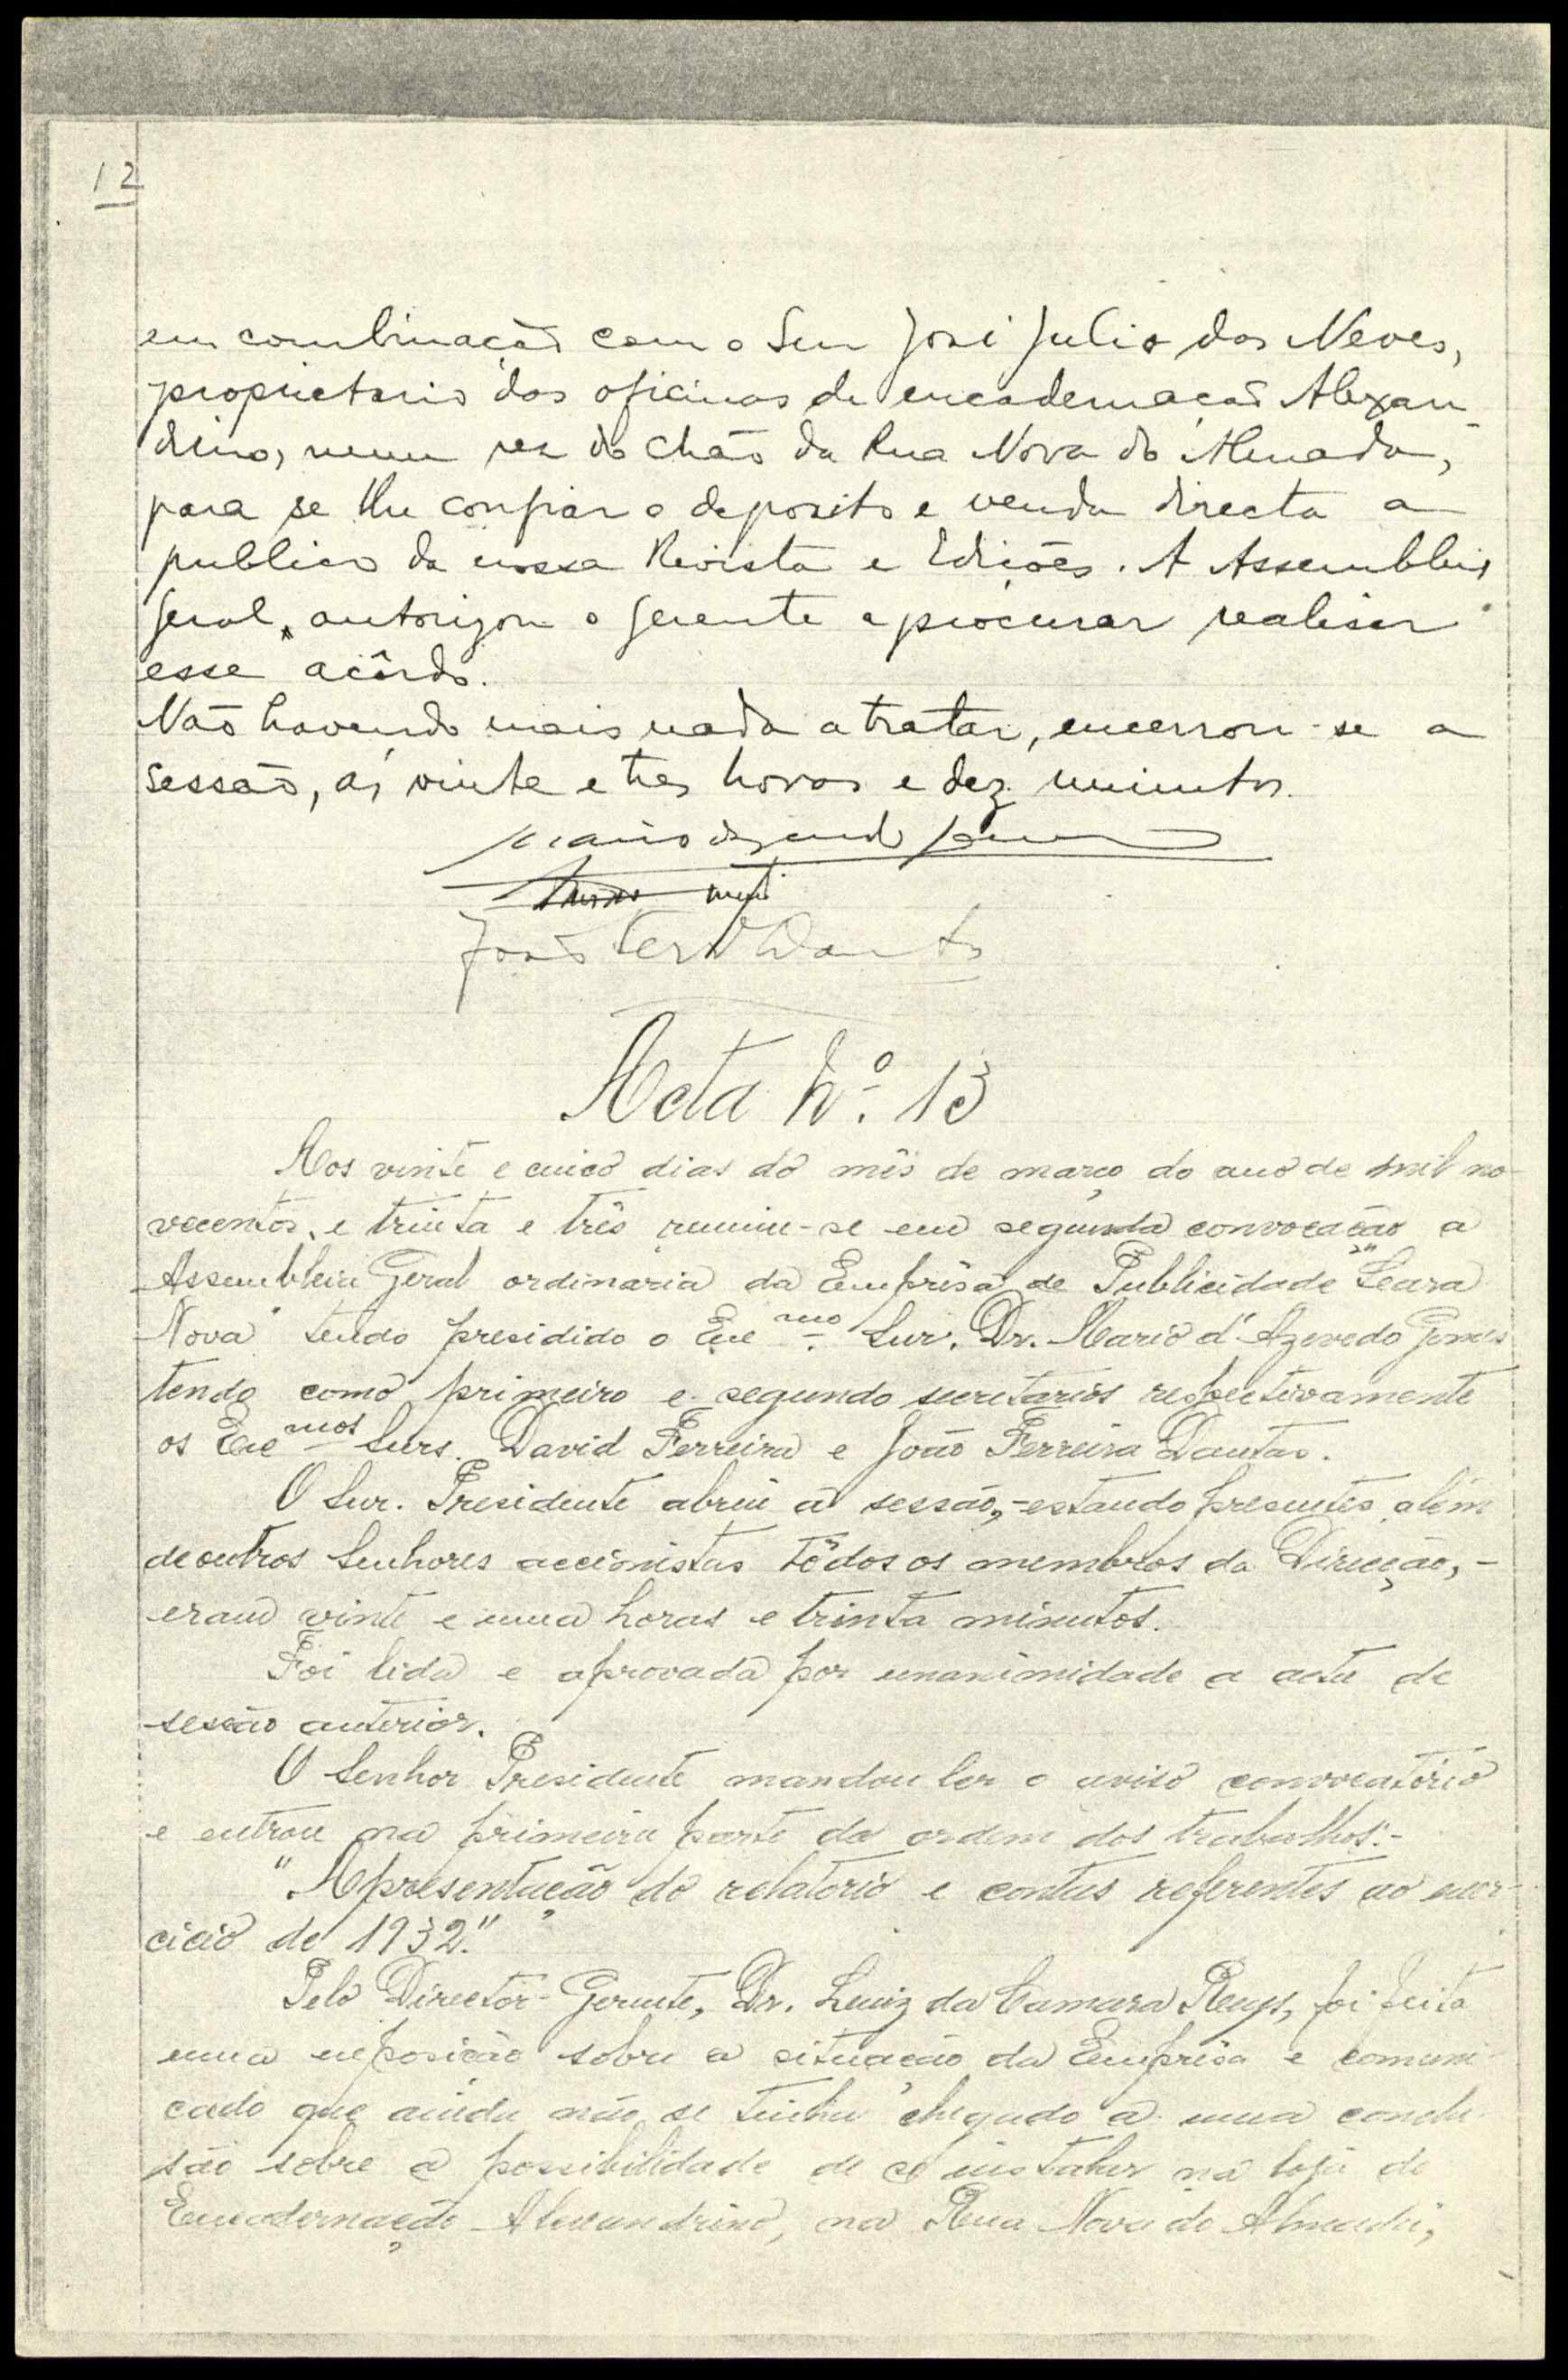 12
em combinação com o Snr José Julio das Neves,
proprietario das oficinas de encadernação Alexan-
drino, num rez do chão da Rua Nova do Almada,
para se lhe confiar o deposito e venda directa a
publico da nossa Revista e Edições. A Assembleia
Geral, autorizou o gerente a procurar realisar
esse acôrdo.
Não havendo mais nada a tratar, encerrou-se a
sessão, ás vinte e tres horas e dez minutos.
João Ferra Dantas
Acta Nº. 13
Aos vinte e cinco dias do mês de março do ano de mil no-
vecentos e trinta e três reuniu-se em segunda convocação a
Assembleia Geral ordinaria da Emprêsa de Publicidade "Seara
Nova" tendo presidido o Exe mo Snr. Dr. Mario d'Azevedo Gomes
tendo como primeiro e segundo secretarios respectivamente
os Exe mos Snrs. David Ferreira e João Ferreira Dantas.
O Snr. Presidente abriu a sessão,-estando presentes além
de outros Senhores accionistas todos os membros da Direcção,-
eram vinte e uma horas e trinta minutos.
Foi lida e aprovada por unanimidade a acta de
sessão anterior.
O Senhor Presidente mandou ler o aviso convocatório
e entrou na primeira parte da ordem dos trabalhos:-
"Apresentação do relatorio e contas referentes ao exer-
cicio de 1932."
Pelo Director-Gerente, Dr. Luiz da Camara Reys, foi feita
uma exposição sobre a situação da Emprêsa e comuni-
cado que ainda não se tinha chegado a uma conclu-
são sobre a possibilidade de se instalar na loja de
Encadernação Alexandrino, na Rua Nova do Almada,